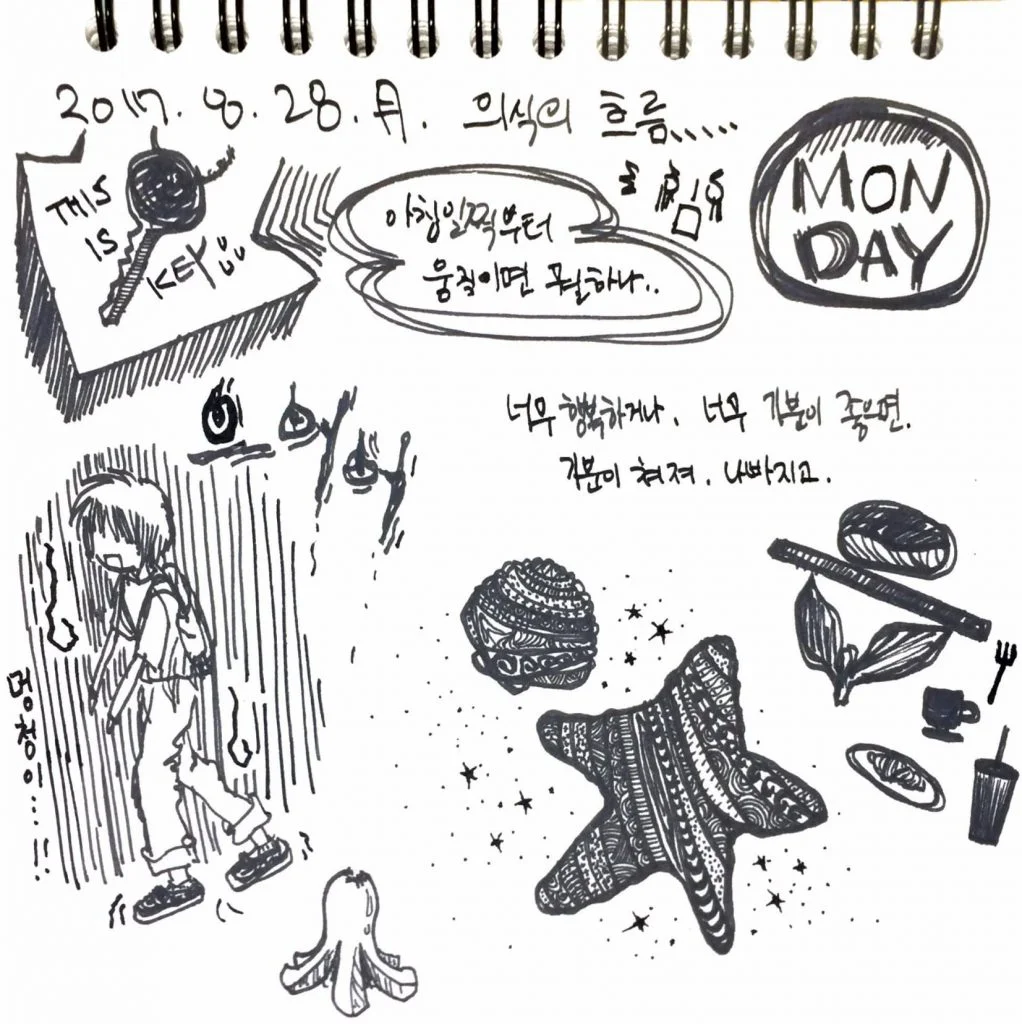 2017. 8. 28. 月. 의식의 흐름.....
THIS
IS
KEY
아침일찍부터
움직이면 뭐하나..
MON
DAY
너무 행복하거나. 너무 기분이 좋으면.
기분이 쳐져. 나빠지고.
멍청이...!!